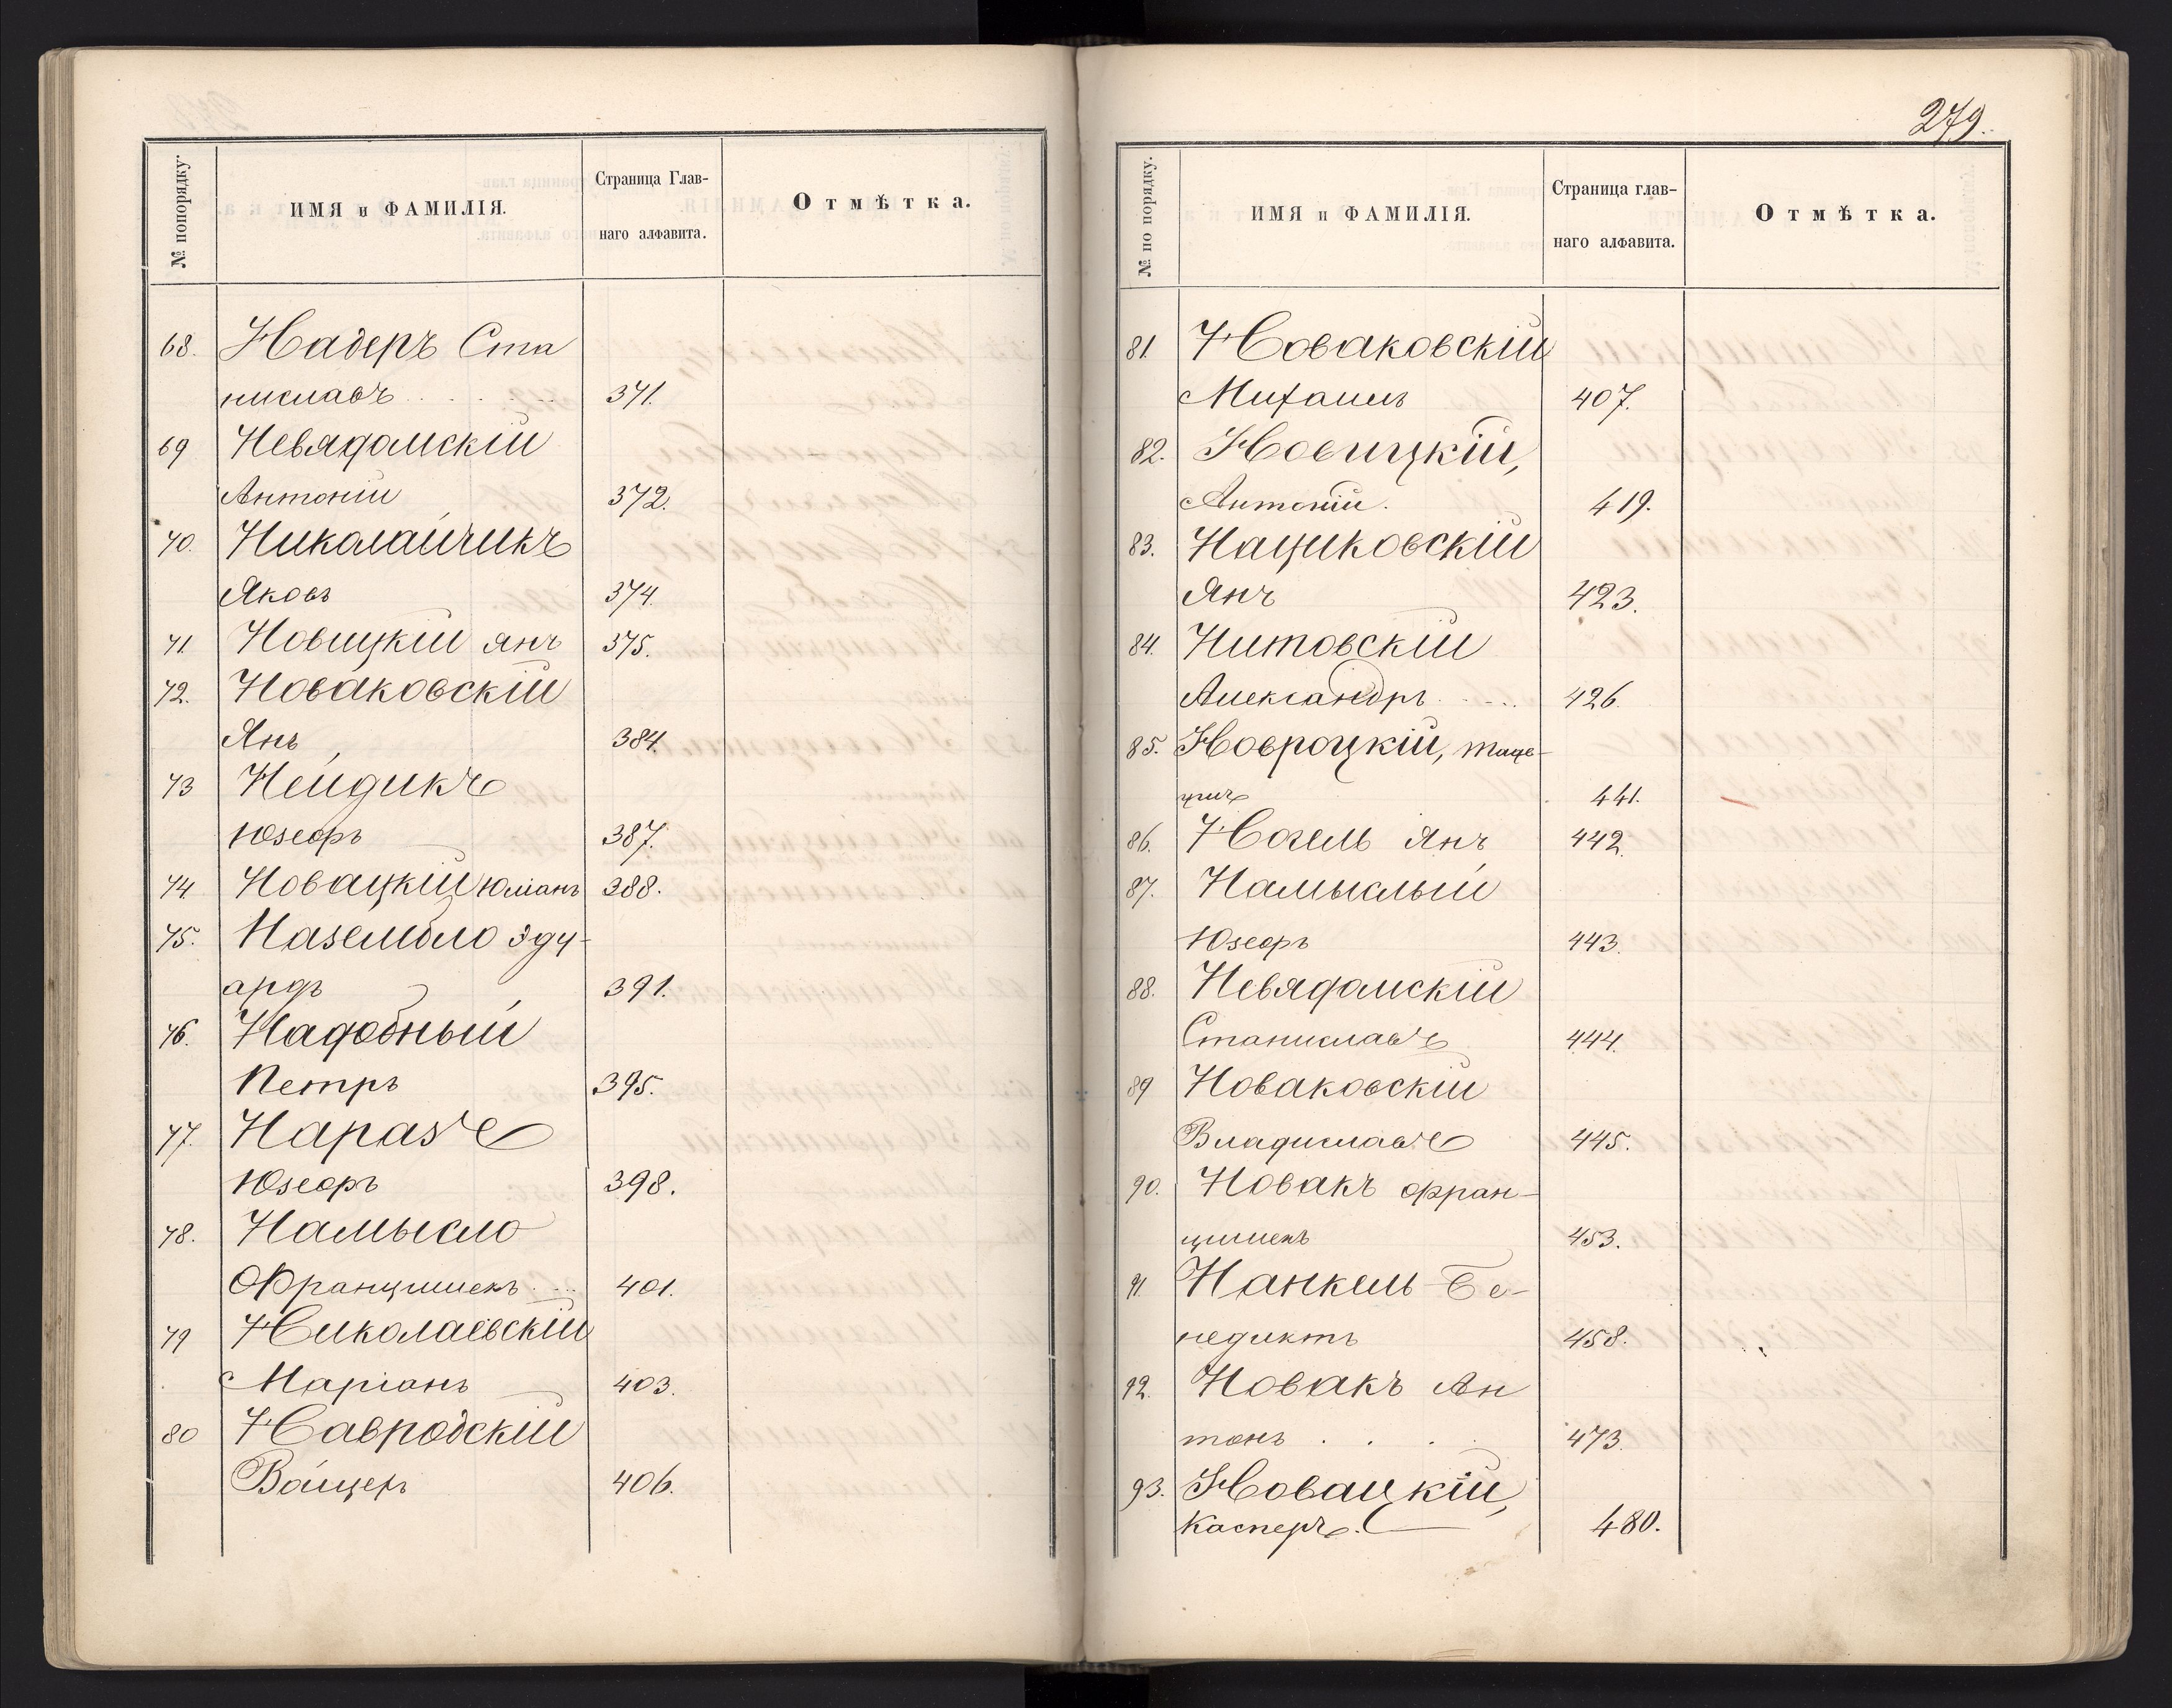 № попорядку.
ИМЯ и ФАМИЛІЯ.
Страница Глав-
наго алфавита.
Отмѣтка.
68. Надеръ Ста
ниславъ 371.
69 Невядомскій
Антоній 372.
70. Николайчикъ
Яковъ 374.
71. Новицкій Янъ 375.
72. Новаковскій
Янъ 384.
73 Нейдикъ
Юзефъ 387.
74. Новацкій Юліанъ 388.
75. Назембло Эду-
ардъ 391.
76. Надобный
Петръ 395.
77. Наразъ
Юзефъ 398.
78. Намысло
Францишекъ 401.
79 Николаевскій
Маріанъ 403.
80 Навродскій
Войцехъ 406.
279.
№ по порядку.
ИМЯ и ФАМИЛІЯ.
Страница глав-
наго алфавита.
Отмѣтка.
81. Новаковскій
Михаилъ 407.
82. Новицкій,
Антоній. 419.
83. Нациковскій
Янъ 423.
84. Нитовскій
Александръ 426.
85. Новроцкій,
441.
86. Ногель Янъ 442.
87. Намыслый
Юзефъ 443.
88. Невядомскій
Станиславъ 444.
89 Новаковскій
Владиславъ 445.
90. Новакъ Фран-
цишекъ 453.
91. Нанкель Бе-
недиктъ 458.
92. Новакъ Ан
тонъ 473.
93. Новацкій,
Касперъ. 480.